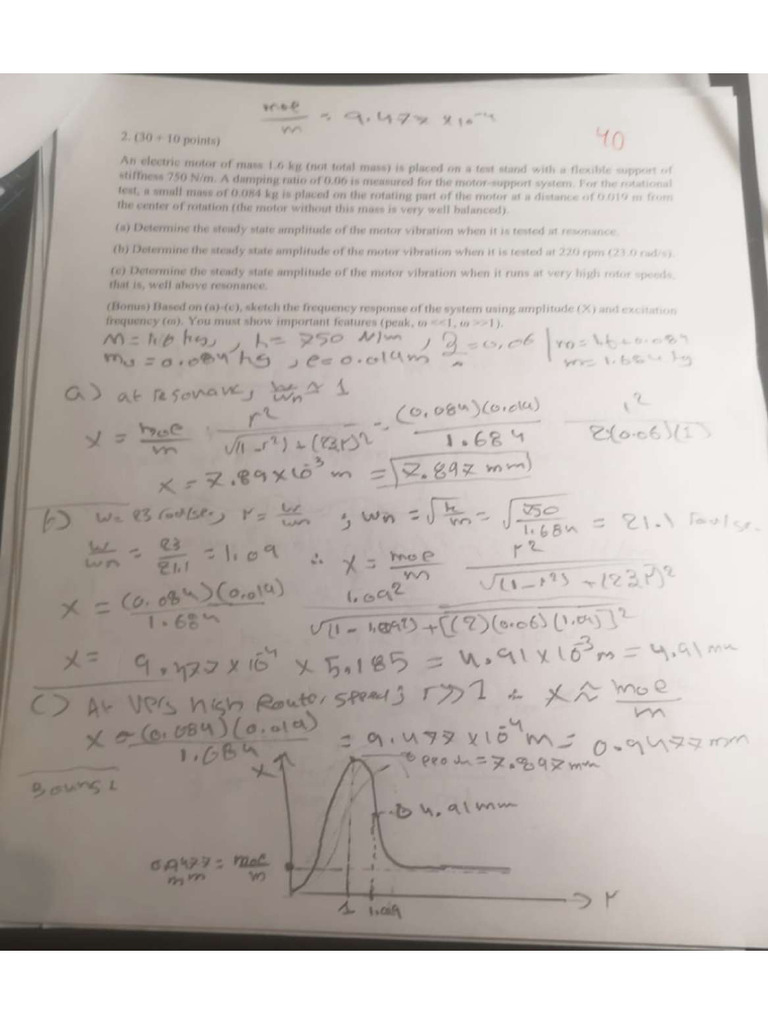 moe/m = 9.477 × 10⁻⁴
40
2. (30 + 10 points)
An electric motor of mass 1.6 kg (not total mass) is placed on a test stand with a flexible support of
stiffness 750 N/m. A damping ratio of 0.06 is measured for the motor-support system. For the rotational
test, a small mass of 0.084 kg is placed on the rotating part of the motor at a distance of 0.019 m from
the center of rotation (the motor without this mass is very well balanced).
(a) Determine the steady state amplitude of the motor vibration when it is tested at resonance.
(b) Determine the steady state amplitude of the motor vibration when it is tested at 220 rpm (23.0 rad/s).
(c) Determine the steady state amplitude of the motor vibration when it runs at very high rotor speeds,
that is, well above resonance.
(Bonus) Based on (a)-(c), sketch the frequency response of the system using amplitude (X) and excitation
frequency (ω). You must show important features (peak, ω <<1, ω >>1).
M=1.6 kg, k = 750 N/m, ζ=0.06 | m=1.6+0.084
mo=0.084 kg, e=0.019m m=1.684 kg
a) at resonance, w/wn ≈ 1
x = moe/m · r²/√(1-r²)+(2ζr)² = (0.084)(0.019)/1.684 1²/2(0.06)(1)
x = 7.89×10⁻³ m = 7.897 mm
b) w=23 rad/sec, r = w/wn ; wn = √k/m = √750/1.684 = 21.1 rad/sec.
w/wn = 23/21.1 = 1.09 ∴ x = moe/m r²/√(1-r²)+(2ζr)²
x = (0.084)(0.019)/1.684 1.09²/√(1-1.09²)+[(2)(0.06)(1.09)]²
x = 9.477×10⁻⁴ × 5.185 = 4.91×10⁻³ m = 4.91 mm
C) At very high Router speed; r>>1 ∴ x ≈ moe/m
x = (0.084)(0.019)/1.684 = 9.477×10⁻⁴ m = 0.9477 mm
Bouns:
x
peak = 7.897 mm
4.91 mm
0.9477 mm = moe/m
1 1.09
r